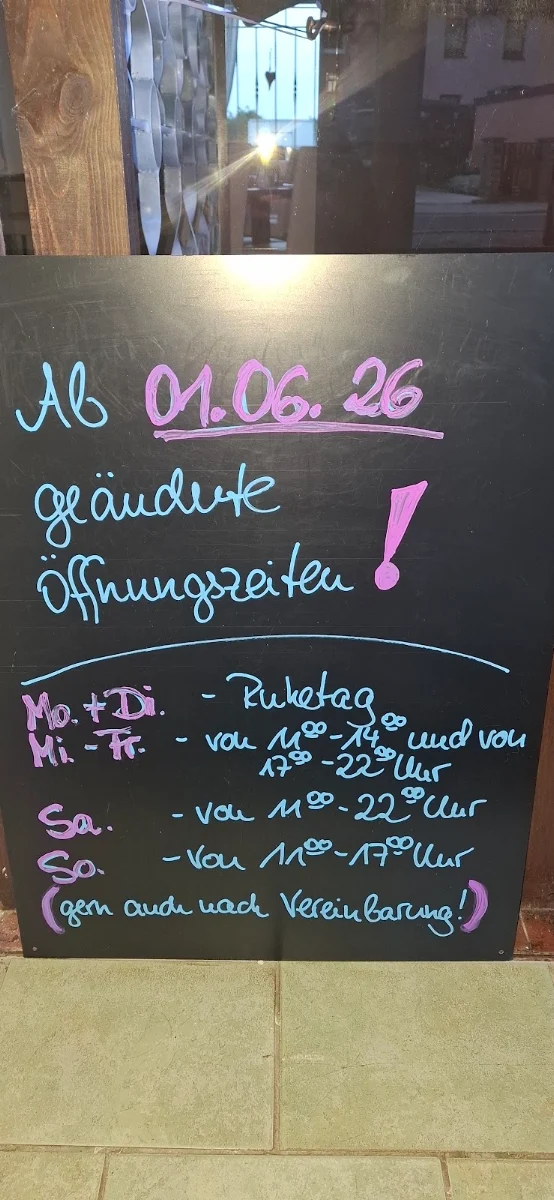 Ab 01.06.26
geänderte
Öffnungszeiten !
Mo. + Di. - Ruhetag
Mi. - Fr. - von 11⁰⁰ - 14⁰⁰ und von
17⁰⁰ - 22⁰⁰ Uhr
Sa. - von 11⁰⁰ - 22⁰⁰ Uhr
So. - von 11⁰⁰ - 17⁰⁰ Uhr
(gern auch nach Vereinbarung!)